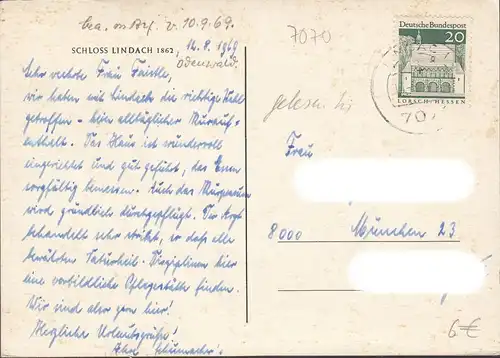 bea. m. Brf. v. 10.9.69.
7070
SCHLOSS LINDACH 1862, 14.8.1969
Odenwald.
Sehr verehrte Frau Faistle,
wir haben mit Lindach die richtige Wahl
getroffen - kein alltäglicher Kurauf-
enthalt. Das Haus ist wundervoll
eingerichtet und gut geführt, das Essen
sorgfältig bemessen. Auch das
wird gründlich durchgepflügt. Der Arzt
behandelt sehr strikt, so daß alle
bewährten Naturheil-Disziplinen hier
eine vorbildliche Pflegestätte finden.
Wir sind aber gern hier!
Herzliche Urlaubsgrüße!
Ihre Schumacher
Deutsche Bundespost
20
LORSCH/HESSEN
707
gelesen
Frau
8000 München 23
6€